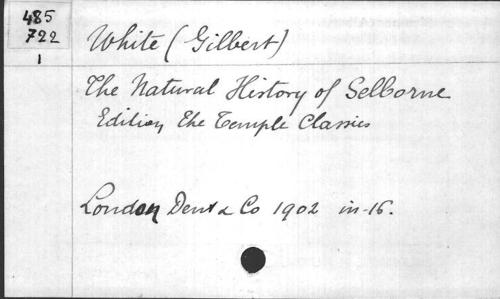 485
722
1
White (Gilbert)
The Natural History of Selborne
Edition The Temple Classics
London Dent & Co 1902 in-16.